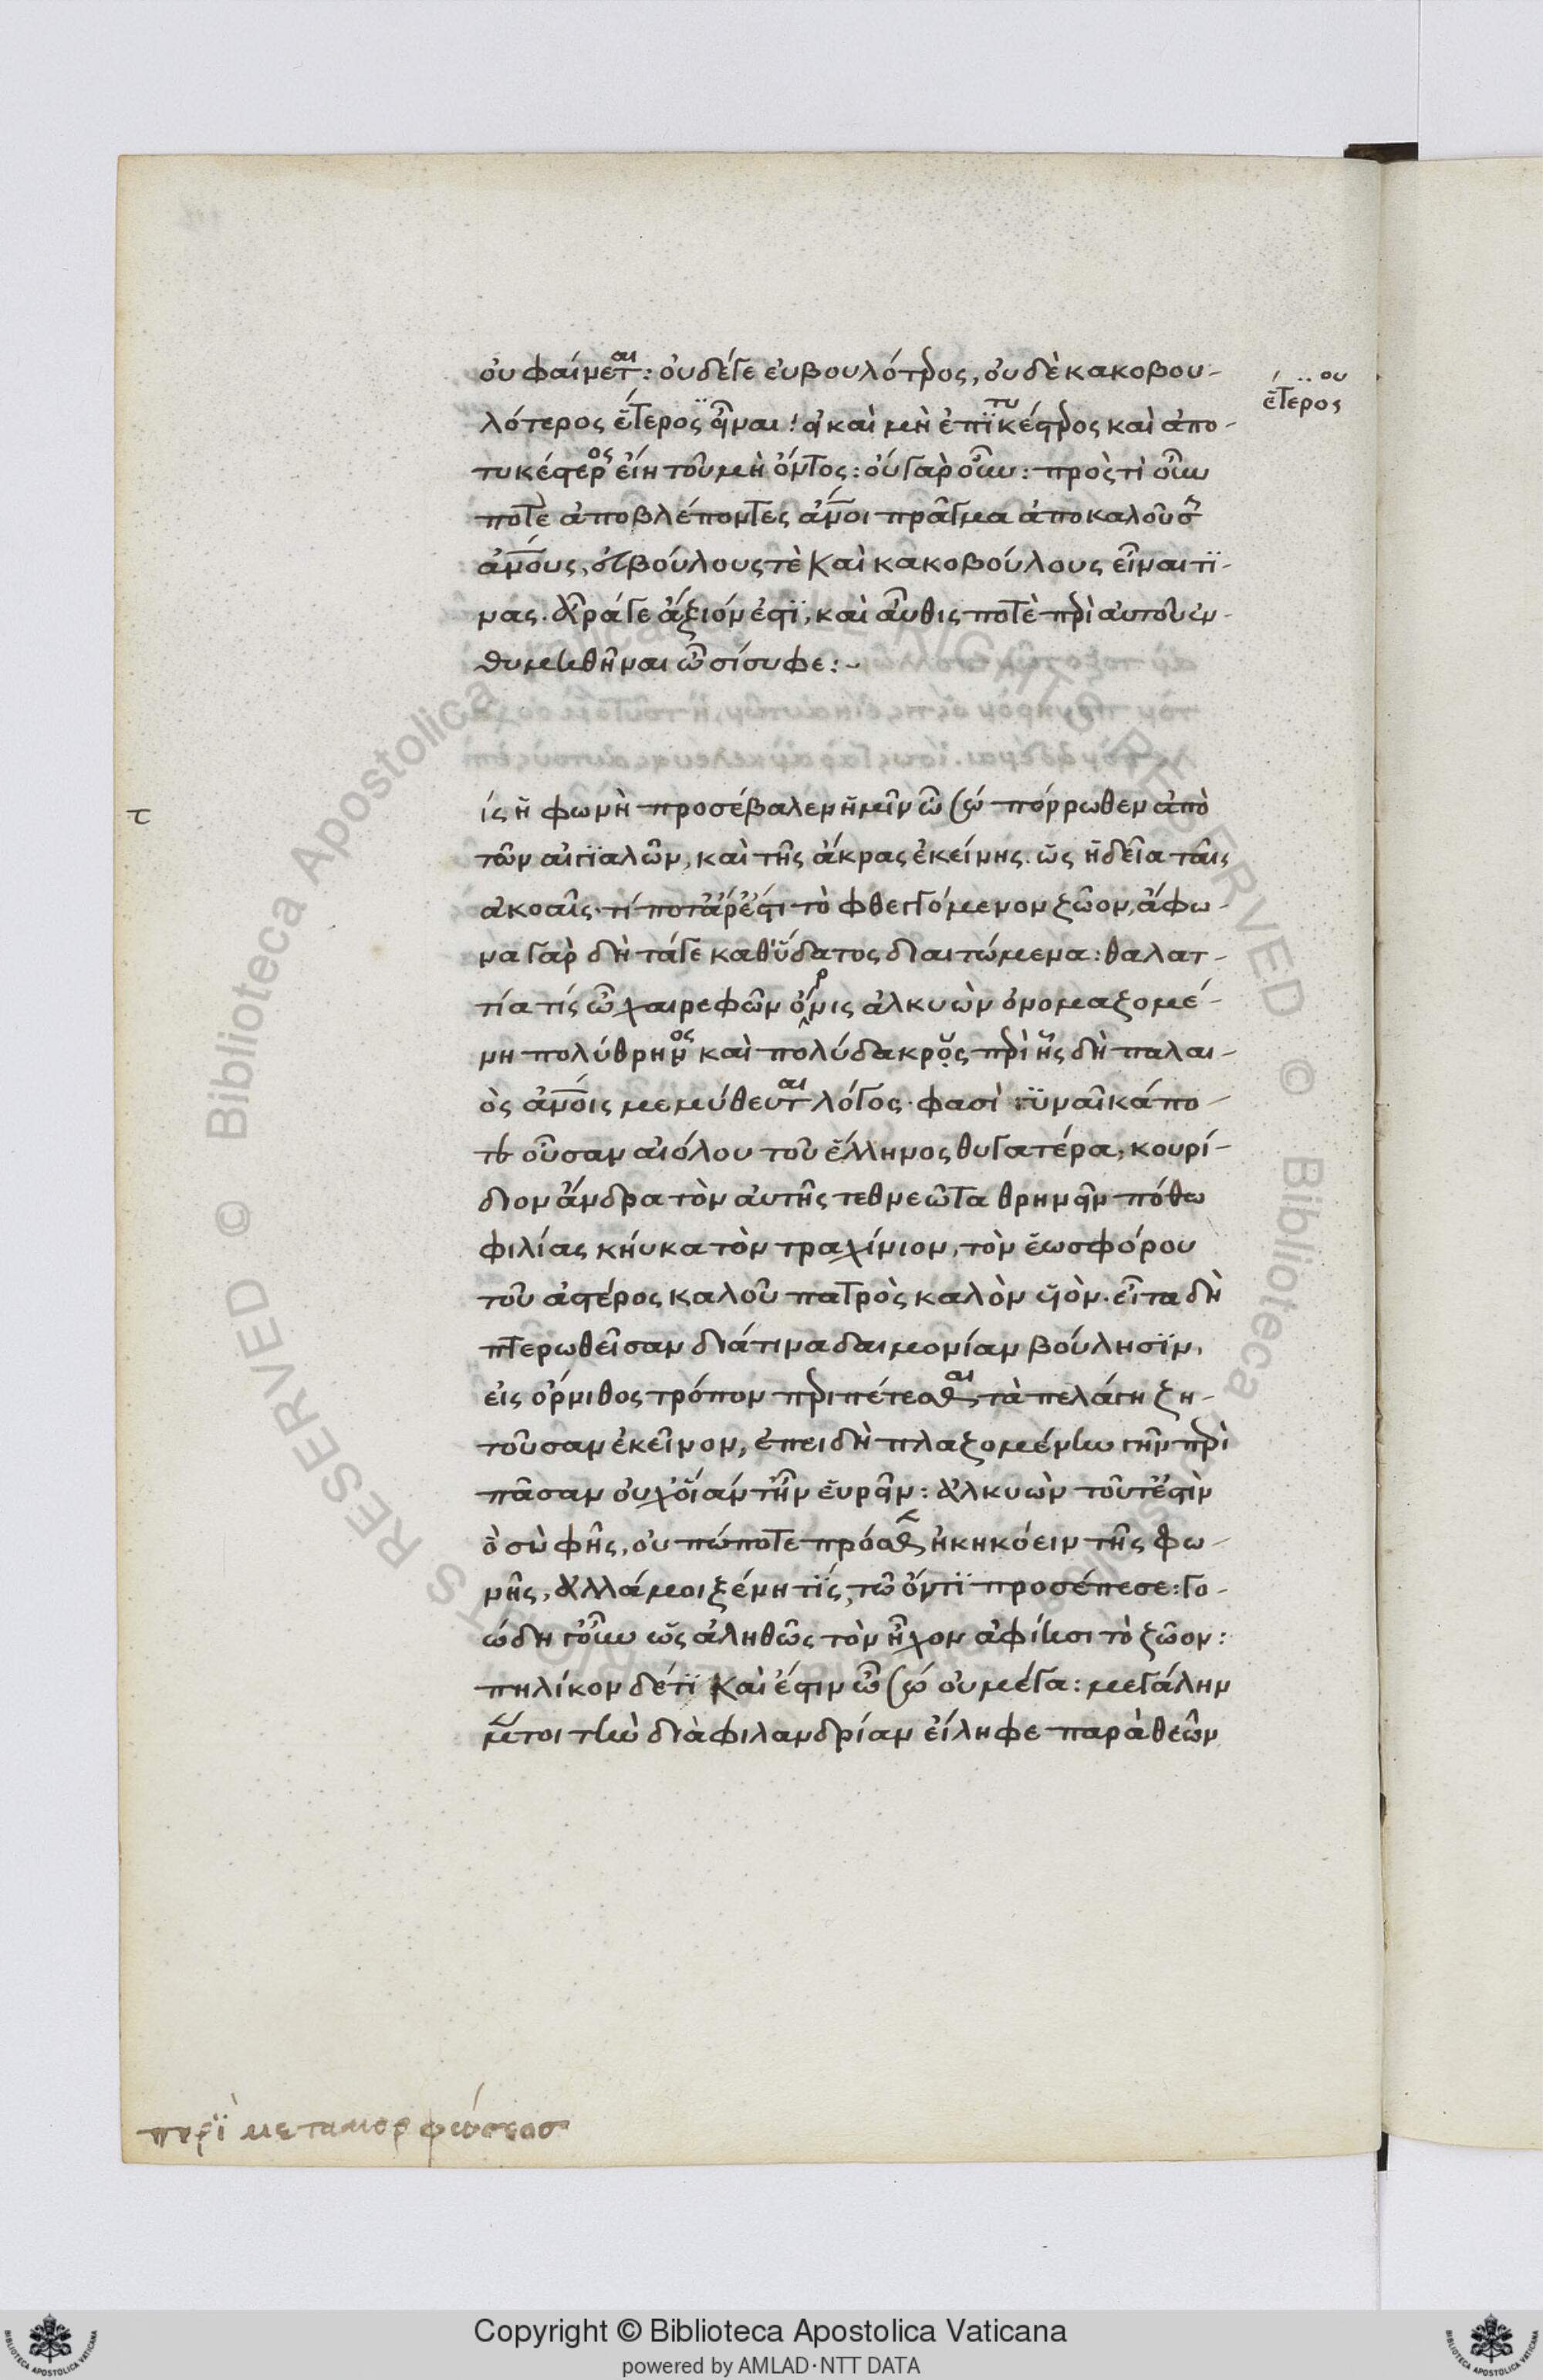 οὐ φαίνεται: οὐδέ γε εὐβουλότερος, οὐδὲ κακοβου-
λότερος ἕτερος εἶναι! εἰ καὶ μὴ ἐπιτυκέστερος καὶ ἀπο-
τυκέστερος εἴη τοῦ μὴ ὄντος: οὐ γὰρ οὖν: πρὸς τὶ οὖν
ποτὲ ἀποβλέποντες ἄνοι πρᾶγμα ἀποκαλοῦσ
ἀνους, εὐβούλους τὲ καὶ κακοβούλους εἶναι τι-
νας. ἆρά γε ἄξιόν ἐστι, καὶ αὖθις ποτὲ περὶ αὐτοῦ ἐν-
θυμηθῆναι ὦ σίσυφε:
ἕτερος
ου
ίς ἡ φωνὴ προσέβαλεν ἡμῖν ὦ σώ πόρρωθεν ἀπὸ
τ
τῶν αἰγιαλῶν, καὶ τῆς ἄκρας ἐκείνης. ὡς ἡδεῖα ταῖς
ἀκοαῖς. τί ποτ' ἄρ' ἐστι τὸ φθεγγόμενον ζῶον, ἄφω-
να γὰρ δὴ τά γε καθ' ὕδατος διαιτώμενα: θαλατ-
τία τίς ὦ χαιρεφῶν ὄρνις ἀλκυὼν ὀνομαζομέ-
νη πολύθρηνος καὶ πολύδακρυς περὶ ἧς δὴ παλαι-
ὸς ἀνοις μεμύθευται λόγος. φασὶ γυναῖκά πο-
τε οὖσαν αἰόλου τοῦ ἕλληνος θυγατέρα, κουρί-
διον ἄνδρα τὸν αὐτῆς τεθνεῶτα θρηνεῖν πόθω
φιλίας κήυκα τὸν τραχίνιον, τὸν ἑωσφόρου
τοῦ ἀστέρος καλοῦ πατρὸς καλὸν υἱὸν. εἶτα δὴ
πτερωθεῖσαν διά τινα δαιμονίαν βούλησιν,
εἰς ὄρνιθος τρόπον περιπέτεσθαι τὰ πελάγη ζη-
τοῦσαν ἐκεῖνον, ἐπειδὴ πλαζομένην γῆν περὶ
πᾶσαν οὐχ οἵαν τ' ἦν εὑρεῖν: ἀλκυὼν τοῦτ' ἐστὶν
ὃ σὺ φῆς, οὐ πώποτε πρόσθεν ἠκηκόειν τῆς φω-
νῆς, ἀλλά μοι ξένη τὶς, τῶ ὄντι προσέπεσε: γο-
ώδη γοῦν ὡς ἀληθῶς τὸν ἦχον ἀφίησι τὸ ζῶον:
πηλίκον δέ τι καὶ ἔστιν ὦ σώ οὐ μέγα: μεγάλην
μέντοι τὴν διὰ φιλανδρίαν εἴληφε παρὰ θεῶν
περὶ μεταμορφώσεος
© Biblioteca Apostolica Vaticana ALL RIGHTS RESERVED © Biblioteca Apostolica Vaticana ALL RIGHTS RESERVED
Copyright © Biblioteca Apostolica Vaticana
powered by AMLAD·NTT DATA